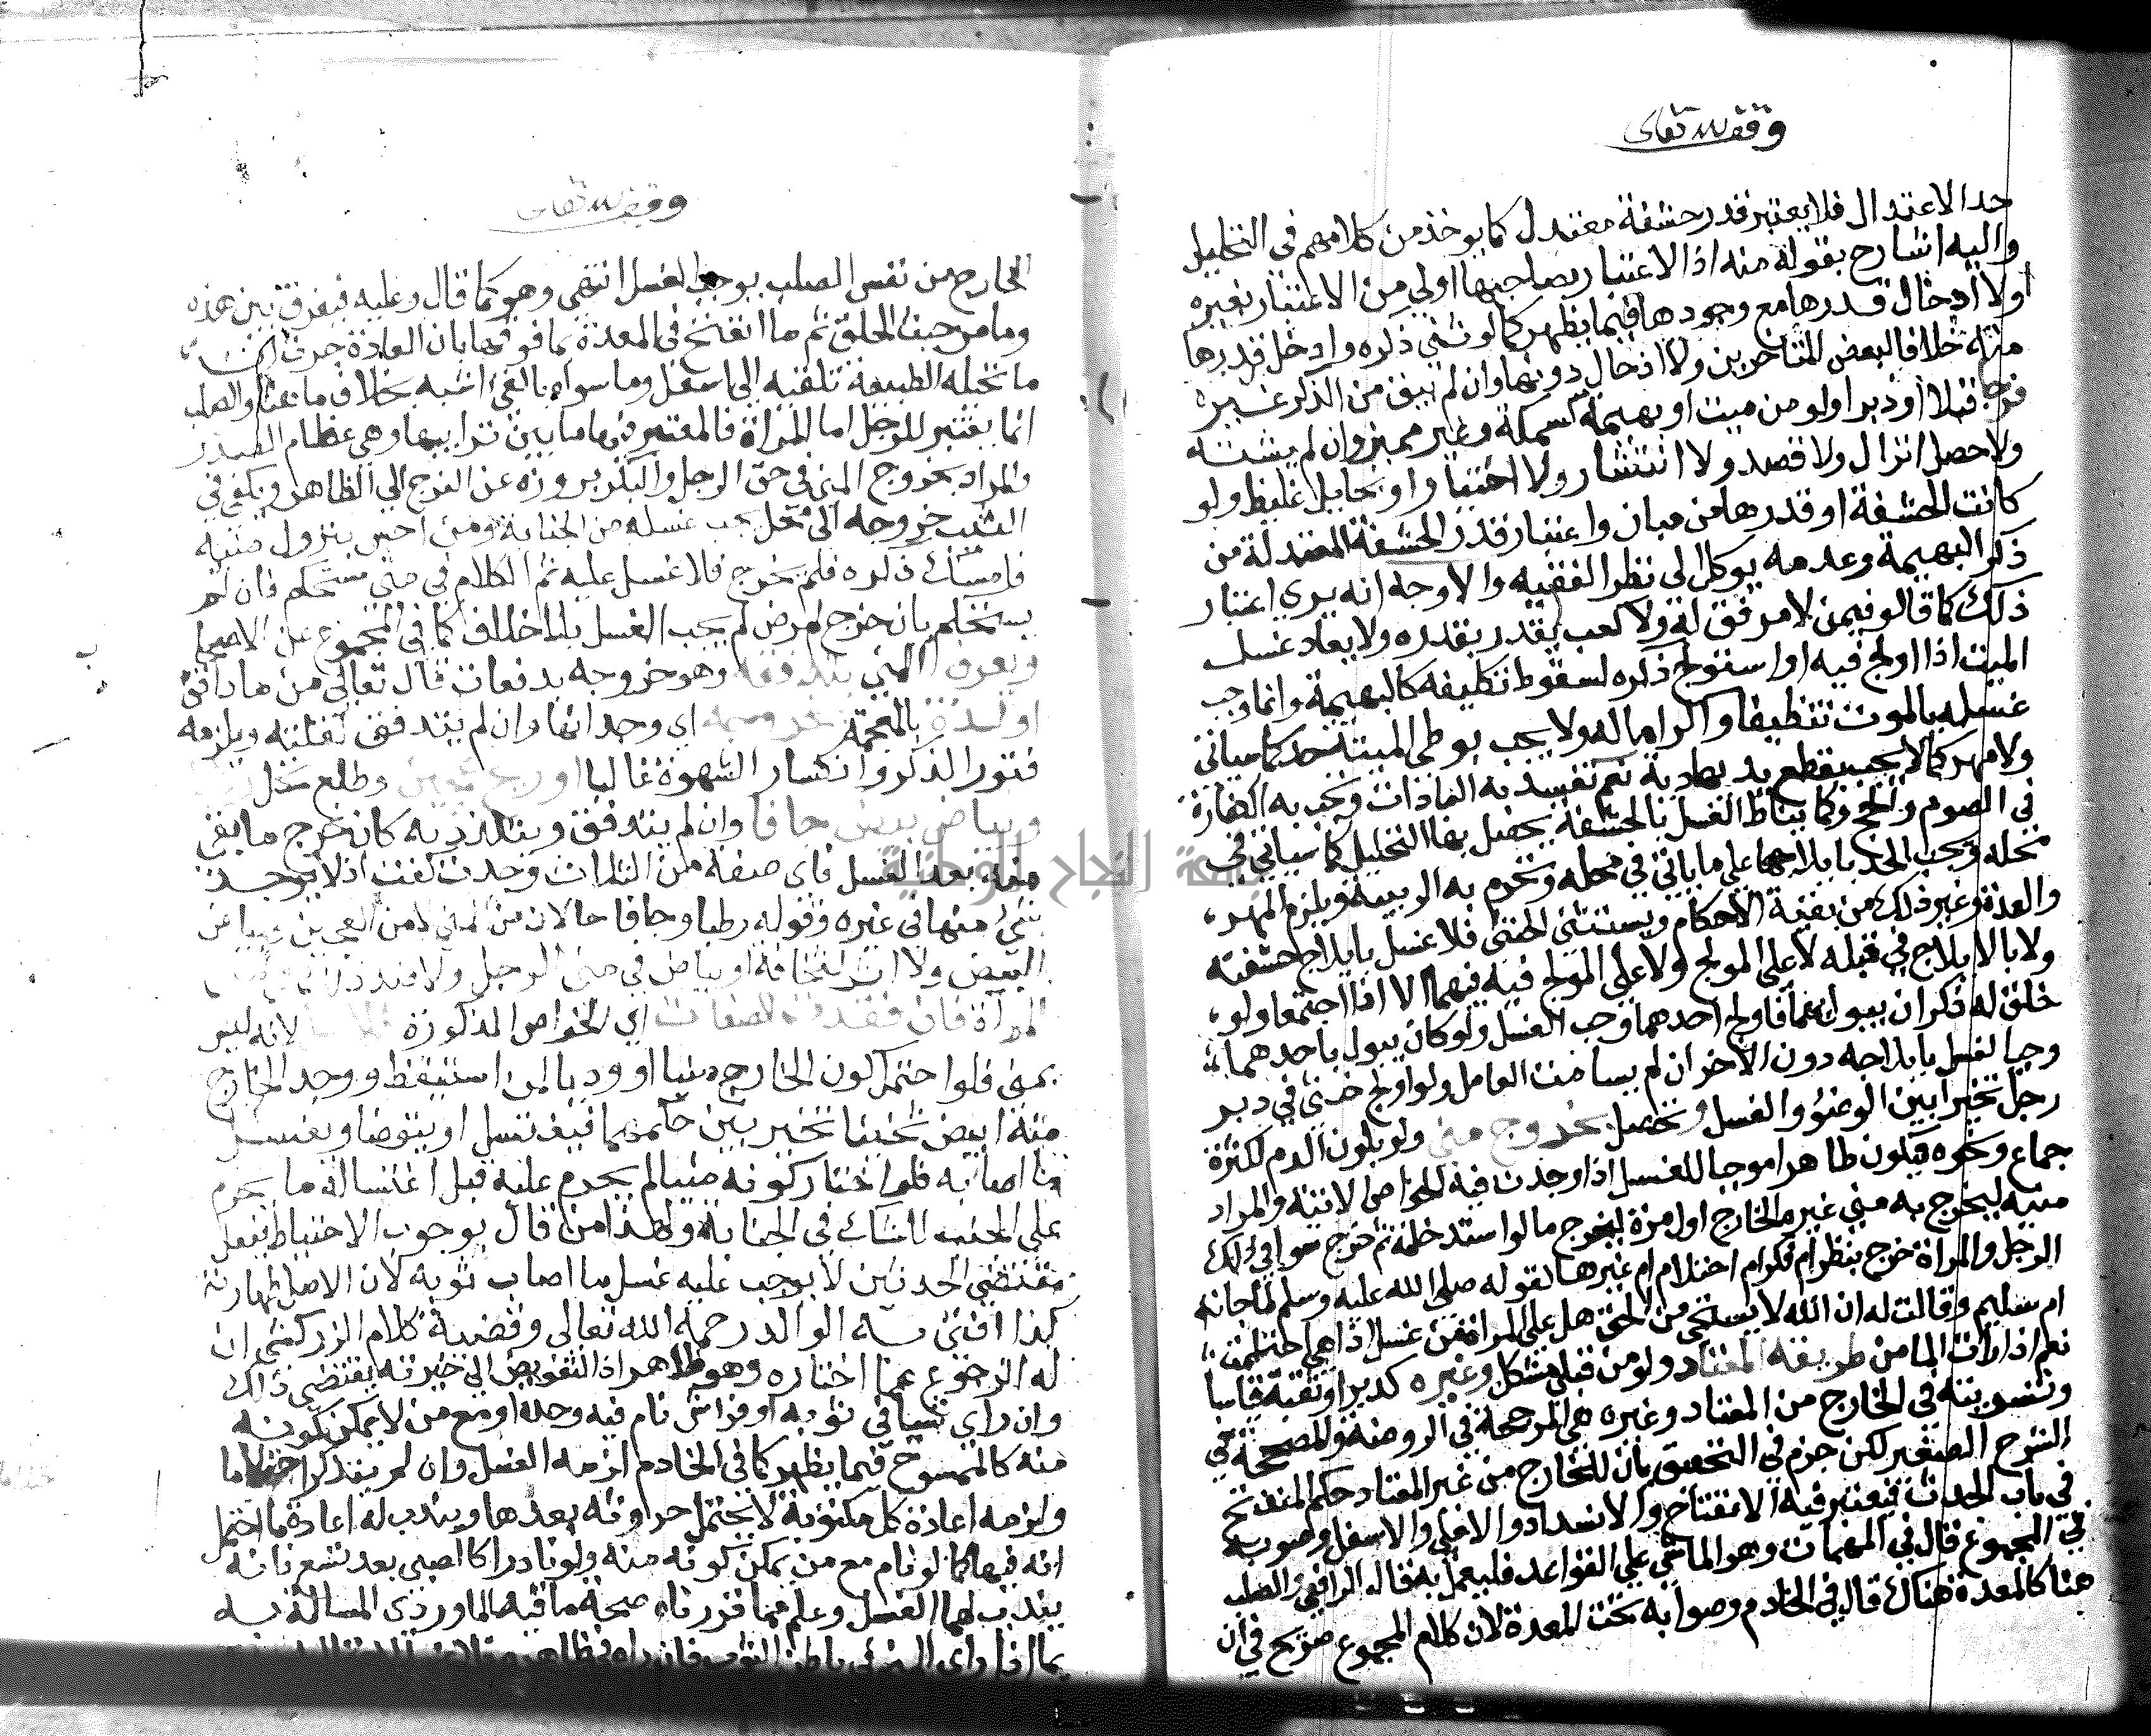 وقف لله تعالى
حد الاعتدال فلا يعتبر قدر حشفة معتدل كما يوخذ من كلامهم في التحليل
واليه اشار ح بقوله منه اذ الاعتبار بصاحبها اولي من الاعتبار بغيره
ولا ادخال قدرها مع وجودها فيما يظهر كما لو ثنى ذكره وادخل قدرها
منه خلافا لبعض المتاخرين ولا ادخال دونها وان لم يبق من الذكر غيره
فرجا قبلا او دبرا ولو من ميت او بهيمة كسمكة وغير مميز وان لم يشته
ولا حصل انزال ولا قصد ولا انتشار ولا اختيار او بحايل غليظ ولو
كانت الحشفة او قدرها من مبان واعتبار قدر الحشفة المعتدلة من
ذكر البهيمة وعدمه يوكل الى نظر الفقيه والاوجه انه يرى اعتبار
ذلك كما قالو فيمن لا مرفق له ولا كعب يقدر بقدره ولا يعاد غسل
الميت اذا اولج فيه او استولج ذكره لسقوط تكليفه كالبهيمة وانما وجب
غسله بالموت تنظيفا واكراما له ولا يجب بوطي الميتة حد كما سياتي
ولا مهر كما لا يجب بقطع يدها دية نعم تفسد به العبادات وتجب به الكفارة
في الصوم والحج وكما يناط الغسل بالحشفة يحصل بها التحليل كما سياتي في
محله ويجب الحد بايلاجها علي ما ياتي في محله وتحرم به الربيبة ويلزم المهر
والعدة وغير ذلك من بقية الاحكام ويستثنى الخنثى فلا غسل بايلاج حشفته
ولا بالايلاج في قبله لا على المولج ولا على المولج فيه فيهما الا اذا اجتمعا ولو
خلق له ذكران يبول بهما فاولج احدهما وجب الغسل ولو كان يبول باحدهما
وجب الغسل بايلاجه دون الاخر ان لم يسامت العامل ولو اولج خنثى في دبر
رجل تخيرا بين الوضوء والغسل وتحصل بخروج مني ولو بلون الدم لكثرة
جماع ونحوه فيكون طاهرا موجبا للغسل اذا وجدت فيه الخواص الاتية والمراد
منيه ليخرج به مني غيره الخارج اول مرة ليخرج ما لو استدخله ثم خرج سوا في ذلك
الرجل والمراة خرج بنظر ام فكر ام احتلام ام غيرها لقوله صلى الله عليه وسلم لما جات
ام سليم وقالت له ان الله لا يستحي من الحق هل على المراة من غسل اذا هي احتلمت
نعم اذا رات الما من طريقه المعتاد ولو من قبلي مشكل وغيره كدبر او ثقبة قياسا
وتسويته في الخارج من المعتاد وغيره هي المرجحة في الروضة والمصححة في
الشرح الصغير لكن جزم في التحقيق بان للخارج من غير المعتاد حكم المنفتح
في باب الحدث فيعتبر فيه الانفتاح والانسداد والاعلى والاسفل وصوبه
في المجموع قال في المهمات وهو الماشي علي القواعد فليعمل به قال الرافعي والصلب
هنا كالمعدة هناك قال في الخادم وصوابه تحت المعدة لان كلام المجموع صريح في ان
وقف لله تعالى
الخارج من نفس الصلب يوجب الغسل انتهى وهو كما قال وعليه فيفرق بين هذه
وما مر حيث الحلق ثم ما انفتح في المعدة بما فوقها بان العادة جرت ان
ما تحيله الطبيعة تلقيه الى اسفل وما سواه بالقئ اشبه بخلاف ما هنا والصلب
انما يعتبر للرجل اما المراة فالمعتبر فيها ما بين ترايبها وهي عظام الصدر
والمراد بخروج المني في حق الرجل والبكر بروزه عن الفرج الى الظاهر ويكفي في
الثيب خروجه الى محل يجب غسله من الجنابة ومن احس بنزول منيه
فامسك ذكره فلم يخرج فلا غسل عليه ثم الكلام في مني مستحكم فان لم
يستحكم بان خرج لمرض لم يجب الغسل بلا خلاف كما في المجموع عن الاصحاب
ويعرف المني بتدفقه وهو خروجه بدفعات قال تعالى من ما دافق
او لذة بالمعجمة بخروجه اي وجدانها وان لم يتدفق لقلته ويلزمه
فتور الذكر وانكسار الشهوة غالبا او ريح عجين وطلع نخل
وبياض بيض جافا وان لم يتدفق ويتلذذ به كان خرج ما بقي
منه بعد الغسل فاي صفة من الثلاث وجدت كفت اذ لا يوجد
شئ منها في غيره وقوله رطبا وجافا حالان من المني لا من العجين وبياض
البيض ولا اثر لثخانة او بياض في مني الرجل ولا ضد ذلك في مني
المراة فان فقدت الصفات اي الخواص المذكورة فلا لانه ليس
بمني فلو احتمل كون الخارج منيا او وديا كمن استيقظ ووجد الخارج
منه ابيض ثخينا تخير بين حكمهما فيغتسل او يتوضا ويغسل
ما اصابه فلو اختار كونه منيا لم يحرم عليه قبل اغتساله ما يحرم
على الجنب للشك في الجنابة ولهذا من قال بوجوب الاحتياط بفعل
مقتضى الحدثين لا يوجب عليه غسل ما اصاب ثوبه لان الاصل طهارته
كذا افتى به الوالد رحمه الله تعالى وقضية كلام الزركشي ان
له الرجوع عما اختاره وهو ظاهر اذ التفويض الى خيرته يقتضي ذلك
وان راي منيا في ثوبه او فراش نام فيه وحده او مع من لا يمكن كونه
منه كالممسوح فيما يظهر كما في الخادم لزمه الغسل وان لم يتذكر احتلاما
ولزمه اعادة كل مكتوبة لا يحتمل حدوثه بعدها ويندب له اعادة ما احتمل
انه فيها كما لو نام مع من يمكن كونه منه ولو نادرا كالصبي بعد تسع فانه
يندب لهما الغسل وعلم مما قررناه صحة ما قيد الماوردي المسالة به
بما اذا راي المني في باطن الثوب فان راه في ظاهره فلا